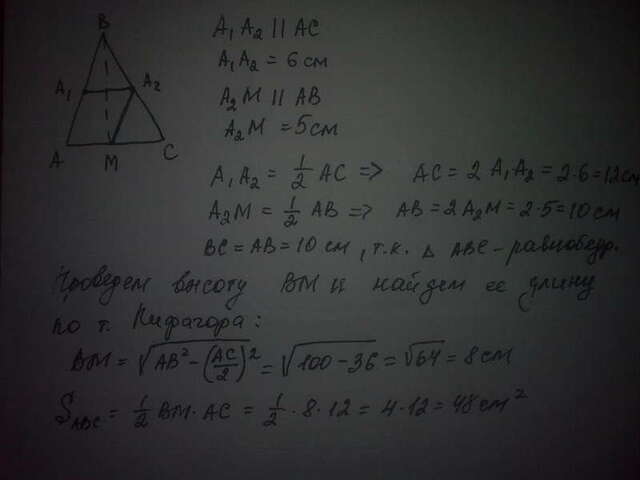 B
A₁ A₂
A M C
A₁A₂ || AC
A₁A₂ = 6 см
A₂M || AB
A₂M = 5 см
A₁A₂ = 1/2 AC => AC = 2 A₁A₂ = 2·6 = 12 см
A₂M = 1/2 AB => AB = 2A₂M = 2·5 = 10 см
BC = AB = 10 см, т.к. △ ABC - равнобедр.
Проведем высоту BM и найдем ее длину
по т. Пифагора:
BM = √(AB² - (AC/2)²) = √(100 - 36) = √64 = 8 см
S_ABC = 1/2 BM · AC = 1/2 · 8 · 12 = 4·12 = 48 см²